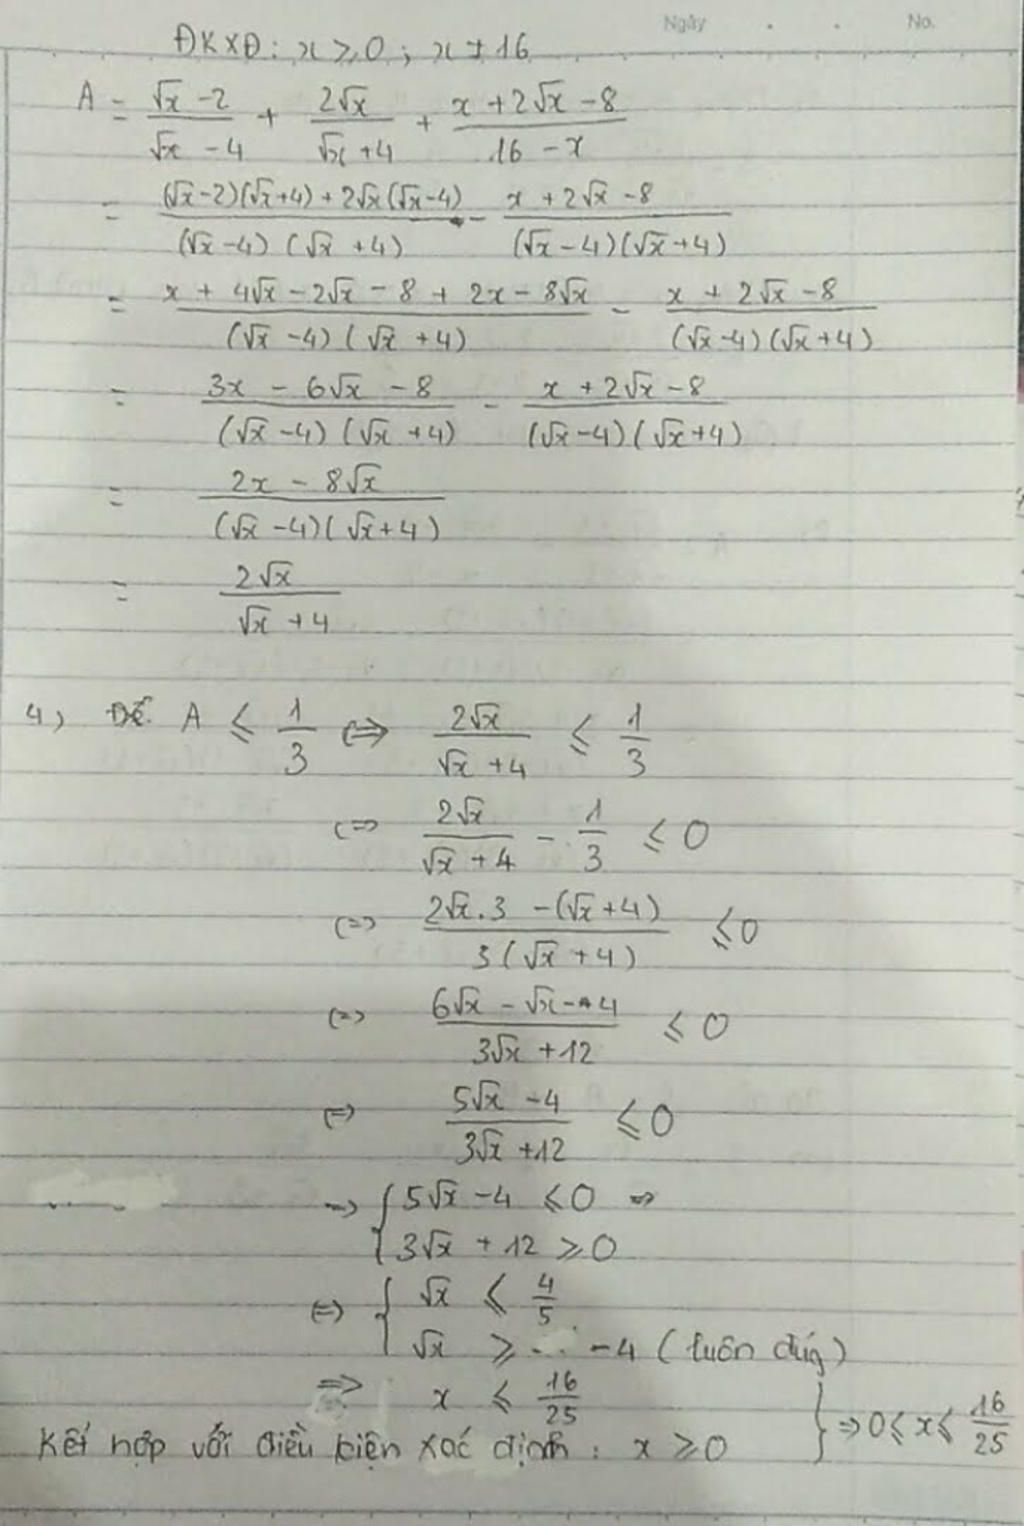 Ngày . . No.
ĐKXĐ: x ⩾ 0 ; x ≠ 16
A = (√x - 2)/(√x - 4) + 2√x/(√x + 4) + (x + 2√x - 8)/(16 - x)
= ((√x - 2)(√x + 4) + 2√x(√x - 4))/((√x - 4)(√x + 4)) - (x + 2√x - 8)/((√x - 4)(√x + 4))
= (x + 4√x - 2√x - 8 + 2x - 8√x)/((√x - 4)(√x + 4)) - (x + 2√x - 8)/((√x - 4)(√x + 4))
= (3x - 6√x - 8)/((√x - 4)(√x + 4)) - (x + 2√x - 8)/((√x - 4)(√x + 4))
= (2x - 8√x)/((√x - 4)(√x + 4))
= 2√x/(√x + 4)
4) Để A ⩽ 1/3 <=> 2√x/(√x + 4) ⩽ 1/3
(=> 2√x/(√x + 4) - 1/3 ⩽ 0
(=> (2√x . 3 - (√x + 4))/(3(√x + 4)) ⩽ 0
(=> (6√x - √x - 4)/(3√x + 12) ⩽ 0
(=> (5√x - 4)/(3√x + 12) ⩽ 0
=> { 5√x - 4 ⩽ 0 =>
3√x + 12 ⩾ 0
(=> { √x ⩽ 4/5
√x ⩾ -4 (luôn đúg)
=> x ⩽ 16/25
Kết hợp với điều kiện xác định : x ⩾ 0 } => 0 ⩽ x ⩽ 16/25